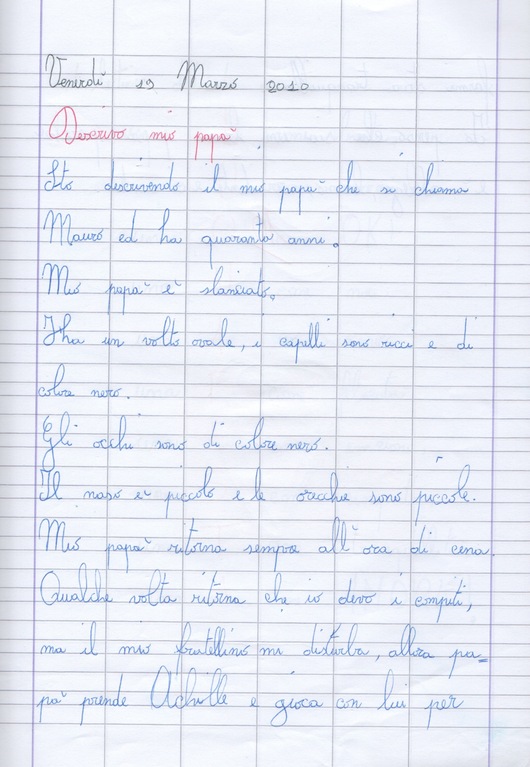 Venerdì 19 Marzo 2010
Descrivo mio papà
Sto descrivendo il mio papà che si chiama
Mauro ed ha quaranta anni.
Mio papà è slanciato.
Ha un volto ovale, i capelli sono ricci e di
colore nero.
Gli occhi sono di colore nero.
Il naso è piccolo e le orecchie sono piccole.
Mio papà ritorna sempre all'ora di cena.
Qualche volta ritorna che io devo i compiti,
ma il mio fratellino mi disturba, allora pa=
pà prende Achille e gioca con lui per